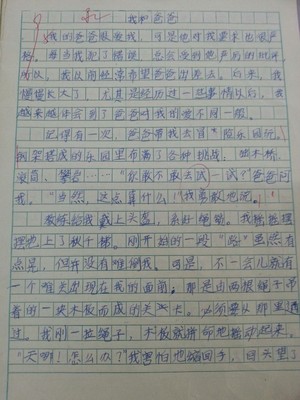 我和爸爸
我的爸爸很爱我，可是他对我要求也很严
格。每当我犯了错误，总会受到他严厉的批评。
所以，我从前经常希望爸爸出差去。后来，我
慢慢长大了，尤其是经历过一些事情以后，我
越来越体会到了爸爸对我的爱不同一般。
记得有一次，爸爸带我去冒险乐园玩。
钢架搭成的乐园里布满了各种挑战，独木桥，
滚筒，攀岩……“你敢不敢去试一试？”爸爸问
我。“当然，这点算什么！”我勇敢地说。
教练给我戴上头盔，系好绳锁。我摇摇
地上了秋千梯。刚开始的一段“路”虽然有
点晃，但并没有难倒我。可是，不一会儿就有
一个难关出现在我的面前。那是由两根绳子吊
着的一块木板而成的关卡。必须要从那里通
过。我刚一拉绳子，木板就拼命地摇动起来。
“天哪！怎么办？”我害怕地缩回手，回头望了